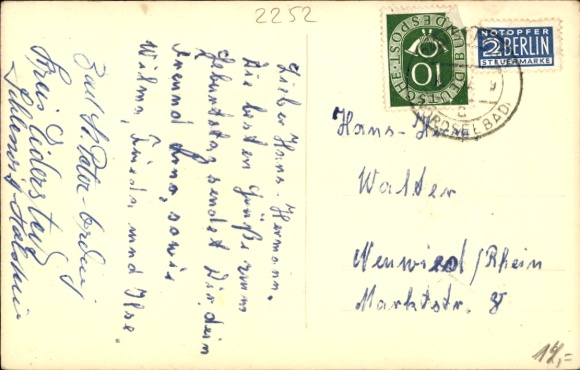 2252
Lieber Hans-Hermann.
Die besten Grüße zum
Geburtstag sendet Dir dein
Freund Uwe, sowie
Wilma, Frieda und Ilse.
Bad St Peter-Ording
Kreis Eiderstedt
Schleswig-Holstein
DEUTSCHE BUNDESPOST
10
NOTOPFER
2 BERLIN
STEUERMARKE
NORDSEEBAD
Hans-Herm.
Walter
Neuwied/Rhein
Marktstr. 8
12,=